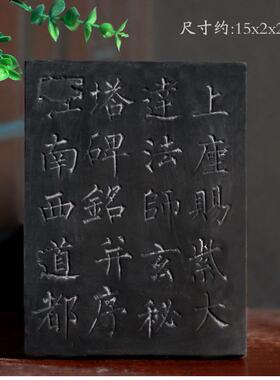 尺寸约:15x2x2
上座赐紫大
達法師玄秘
塔碑銘并序
江南西道都